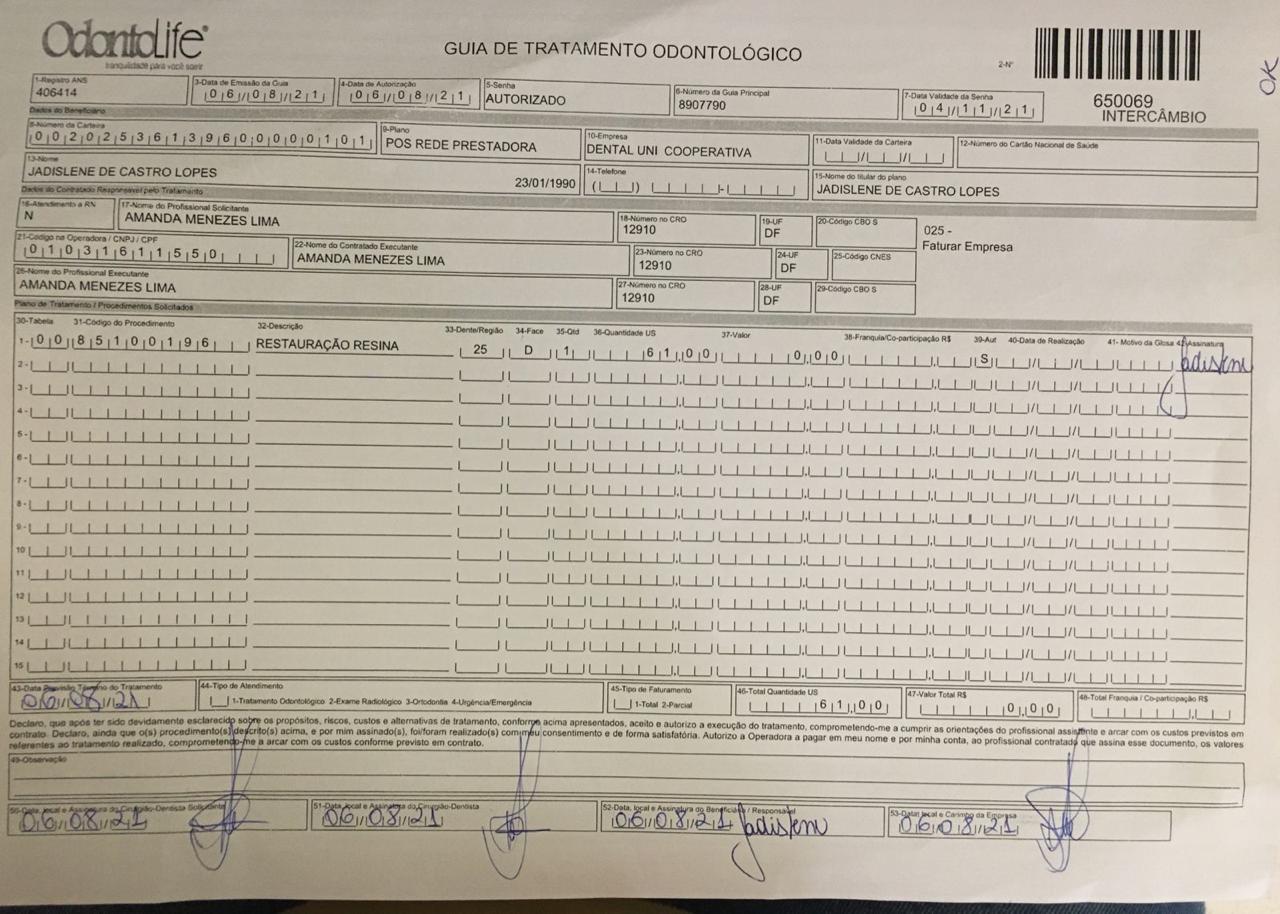 OdontoLife®
tranquilidade para você sorrir
GUIA DE TRATAMENTO ODONTOLÓGICO
2-Nº
650069
INTERCÂMBIO
OK
1-Registro ANS
406414
3-Data de Emissão da Guia
06/08/21
4-Data de Autorização
06/08/21
5-Senha
AUTORIZADO
6-Número da Guia Principal
8907790
7-Data Validade da Senha
04/11/21
Dados do Beneficiário
8-Número da Carteira
00202536139600000101
9-Plano
POS REDE PRESTADORA
10-Empresa
DENTAL UNI COOPERATIVA
11-Data Validade da Carteira
12-Número do Cartão Nacional de Saúde
13-Nome
JADISLENE DE CASTRO LOPES 23/01/1990
14-Telefone
15-Nome do titular do plano
JADISLENE DE CASTRO LOPES
Dados do Contratado Responsável pelo Tratamento
16-Atendimento a RN
N
17-Nome do Profissional Solicitante
AMANDA MENEZES LIMA
18-Número no CRO
12910
19-UF
DF
20-Código CBO S
025 -
Faturar Empresa
21-Código na Operadora / CNPJ / CPF
01031611550
22-Nome do Contratado Executante
AMANDA MENEZES LIMA
23-Número no CRO
12910
24-UF
DF
25-Código CNES
26-Nome do Profissional Executante
AMANDA MENEZES LIMA
27-Número no CRO
12910
28-UF
DF
29-Código CBO S
Plano de Tratamento / Procedimentos Solicitados
30-Tabela 31-Código do Procedimento 32-Descrição 33-Dente/Região 34-Face 35-Qtd 36-Quantidade US 37-Valor 38-Franquia/Co-participação R$ 39-Aut 40-Data de Realização 41- Motivo da Glosa 42-Assinatura
1- 00 85100196 RESTAURAÇÃO RESINA 25 D 1 61,00 0,00 S Jadislene
2-
3-
4-
5-
6-
7-
8-
9-
10
11
12
13
14
15
43-Data Previsão Término do Tratamento
06/08/21
44-Tipo de Atendimento
1-Tratamento Odontológico 2-Exame Radiológico 3-Ortodontia 4-Urgência/Emergência
45-Tipo de Faturamento
1-Total 2-Parcial
46-Total Quantidade US
61,00
47-Valor Total R$
0,00
48-Total Franquia / Co-participação R$
Declaro, que após ter sido devidamente esclarecido sobre os propósitos, riscos, custos e alternativas de tratamento, conforme acima apresentados, aceito e autorizo a execução do tratamento, comprometendo-me a cumprir as orientações do profissional assistente e arcar com os custos previstos em
contrato. Declaro, ainda que o(s) procedimento(s) descrito(s) acima, e por mim assinado(s), foi/foram realizado(s) com meu consentimento e de forma satisfatória. Autorizo a Operadora a pagar em meu nome e por minha conta, ao profissional contratado que assina esse documento, os valores
referentes ao tratamento realizado, comprometendo-me a arcar com os custos conforme previsto em contrato.
49-Observação
50-Data, local e Assinatura do Cirurgião-Dentista Solicitante
06/08/21
51-Data, local e Assinatura do Cirurgião-Dentista
06/08/21
52-Data, local e Assinatura do Beneficiário / Responsável
06/08/21 Jadislene
53-Data, local e Carimbo da Empresa
06/08/21